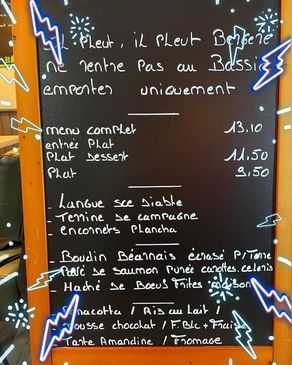 il Pleut, il Pleut Bergere
ne rentre pas au Bassi
emportes uniquement
menu complet 13.10
entrée Plat
Plat Dessert 11.50
Plat 9,50
- Langue sce Diable
- Terrine de campagne
- encornets Plancha
- Boudin Béarnais écrasé P/Terre
- Pavé de saumon Purée carottes.celeris
- Haché de Boeuf Frites maison
Panacotta / Ris au Lait /
Mousse chocolat / F.Blc + Fraise
Tarte Amandine / Fromage